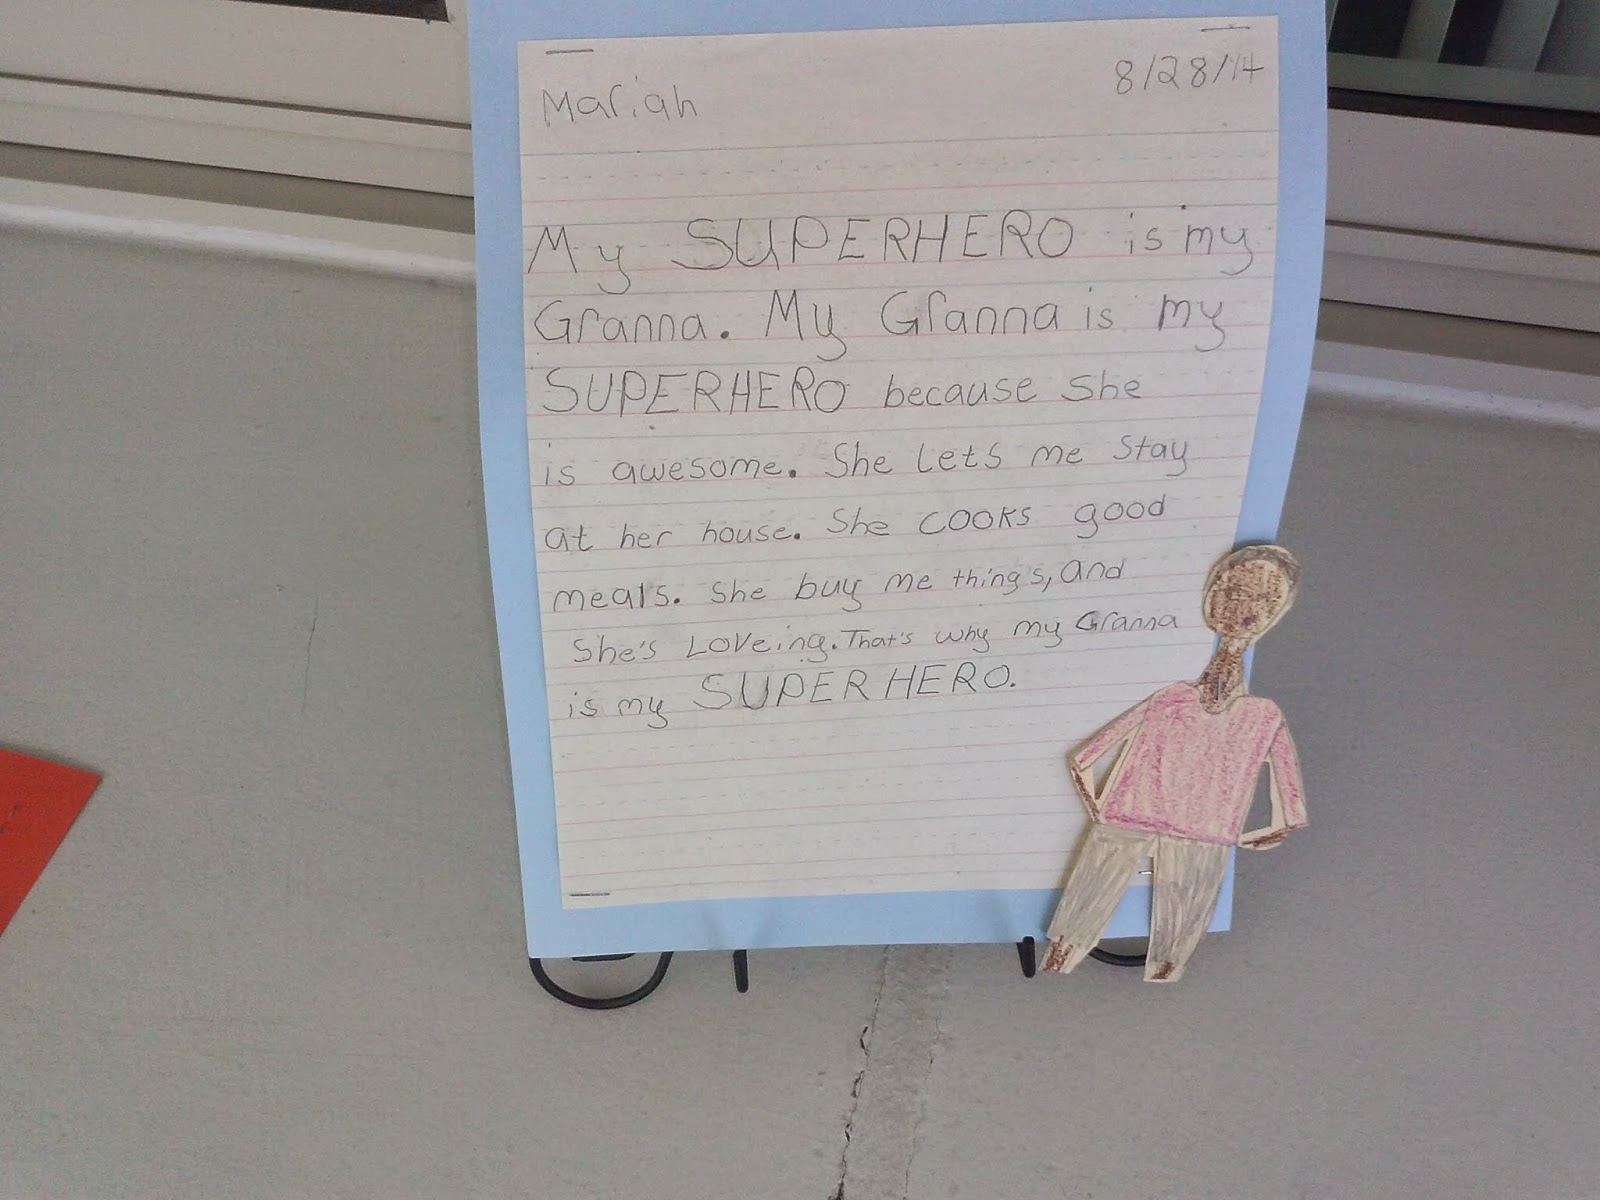 Mariah 8/28/14
My SUPERHERO is my
Granna. My Granna is my
SUPERHERO because she
is awesome. She Lets me stay
at her house. She cooks good
meals. She buy me things, and
she's Loveing. That's why my Granna
is my SUPERHERO.